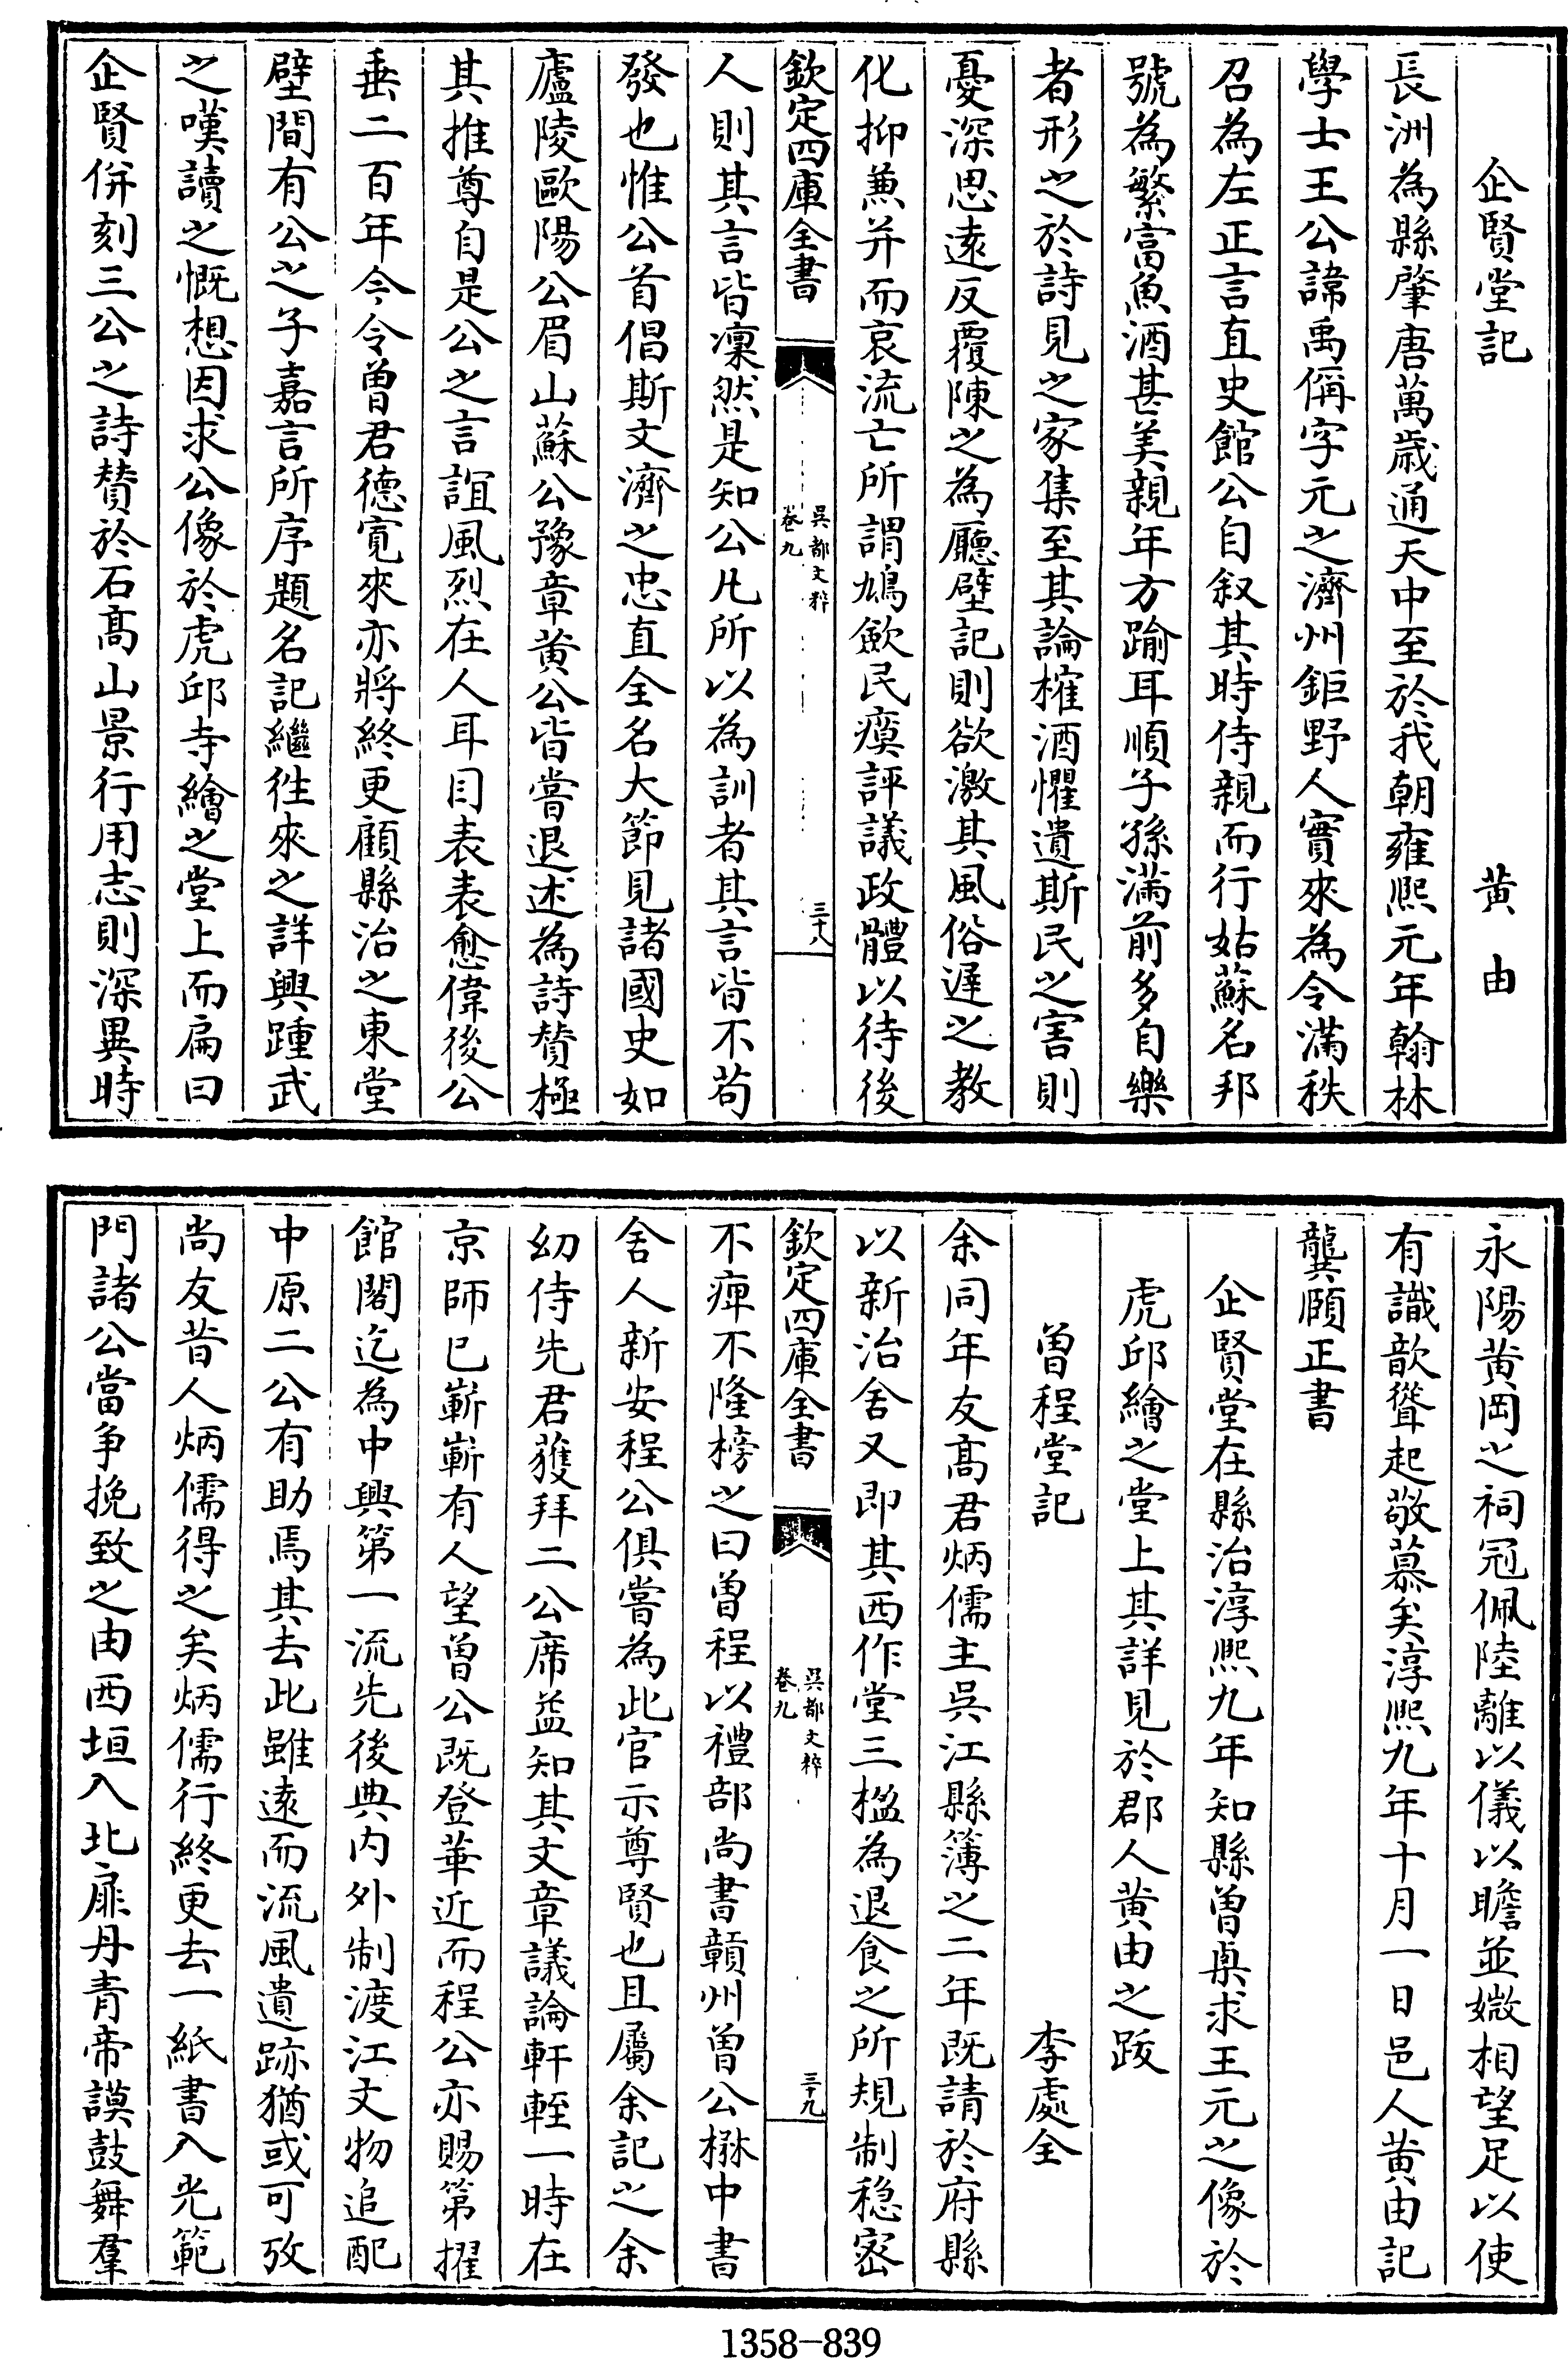 企賢堂記　黄由
長洲為縣肇唐萬歲通天中至於我朝雍熙元年翰林
學士王公諱禹偁字元之濟州鉅野人實來為令滿秩
召為左正言直史館公自叙其時侍親而行姑蘇名邦
號為繁富魚酒甚美親年方踰耳順子孫滿前多自樂
者形之於詩見之家集至其論榷酒懼遺斯民之害則
憂深思遠反覆陳之為廳壁記則欲激其風俗遲之教
化抑兼并而哀流亡所謂鳩歛民瘼評議政體以待後
欽定四庫全書
吳都文粹
卷九
三十八
人則其言皆凜然是知公凡所以為訓者其言皆不苟
發也惟公首倡斯文濟之忠直全名大節見諸國史如
廬陵歐陽公眉山蘇公豫章黄公皆嘗退述為詩贊極
其推尊自是公之言誼風烈在人耳目表表愈偉後公
垂二百年今令曾君德寛來亦將終更顧縣治之東堂
壁間有公之子嘉言所序題名記繼徃來之詳興踵武
之嘆讀之慨想因求公像於虎邱寺繪之堂上而扁曰
企賢併刻三公之詩贊於石髙山景行用志則深異時
永陽黄岡之祠冠佩陸離以儀以瞻並媺相望足以使
有識歆聳起敬慕矣淳熙九年十月一日邑人黄由記
龔頤正書
企賢堂在縣治淳熙九年知縣曾㮚求王元之像於
虎邱繪之堂上其詳見於郡人黄由之跋
曾程堂記　李處全
余同年友髙君炳儒主吳江縣簿之二年既請於府縣
以新治舍又即其西作堂三楹為退食之所規制穏密
欽定四庫全書
吳都文粹
卷九
三十九
不痺不隆榜之曰曾程以禮部尚書贛州曾公楙中書
舍人新安程公俱嘗為此官示尊賢也且屬余記之余
幼侍先君獲拜二公席益知其文章議論軒輊一時在
京師已嶄嶄有人望曾公既登華近而程公亦賜第擢
館閣迄為中興第一流先後典内外制渡江文物追配
中原二公有助焉其去此雖逺而流風遺跡猶或可攷
尚友昔人炳儒得之矣炳儒行終更去一紙書入光範
門諸公當争挽致之由西垣入北扉丹青帝謨鼓舞羣
1358-839